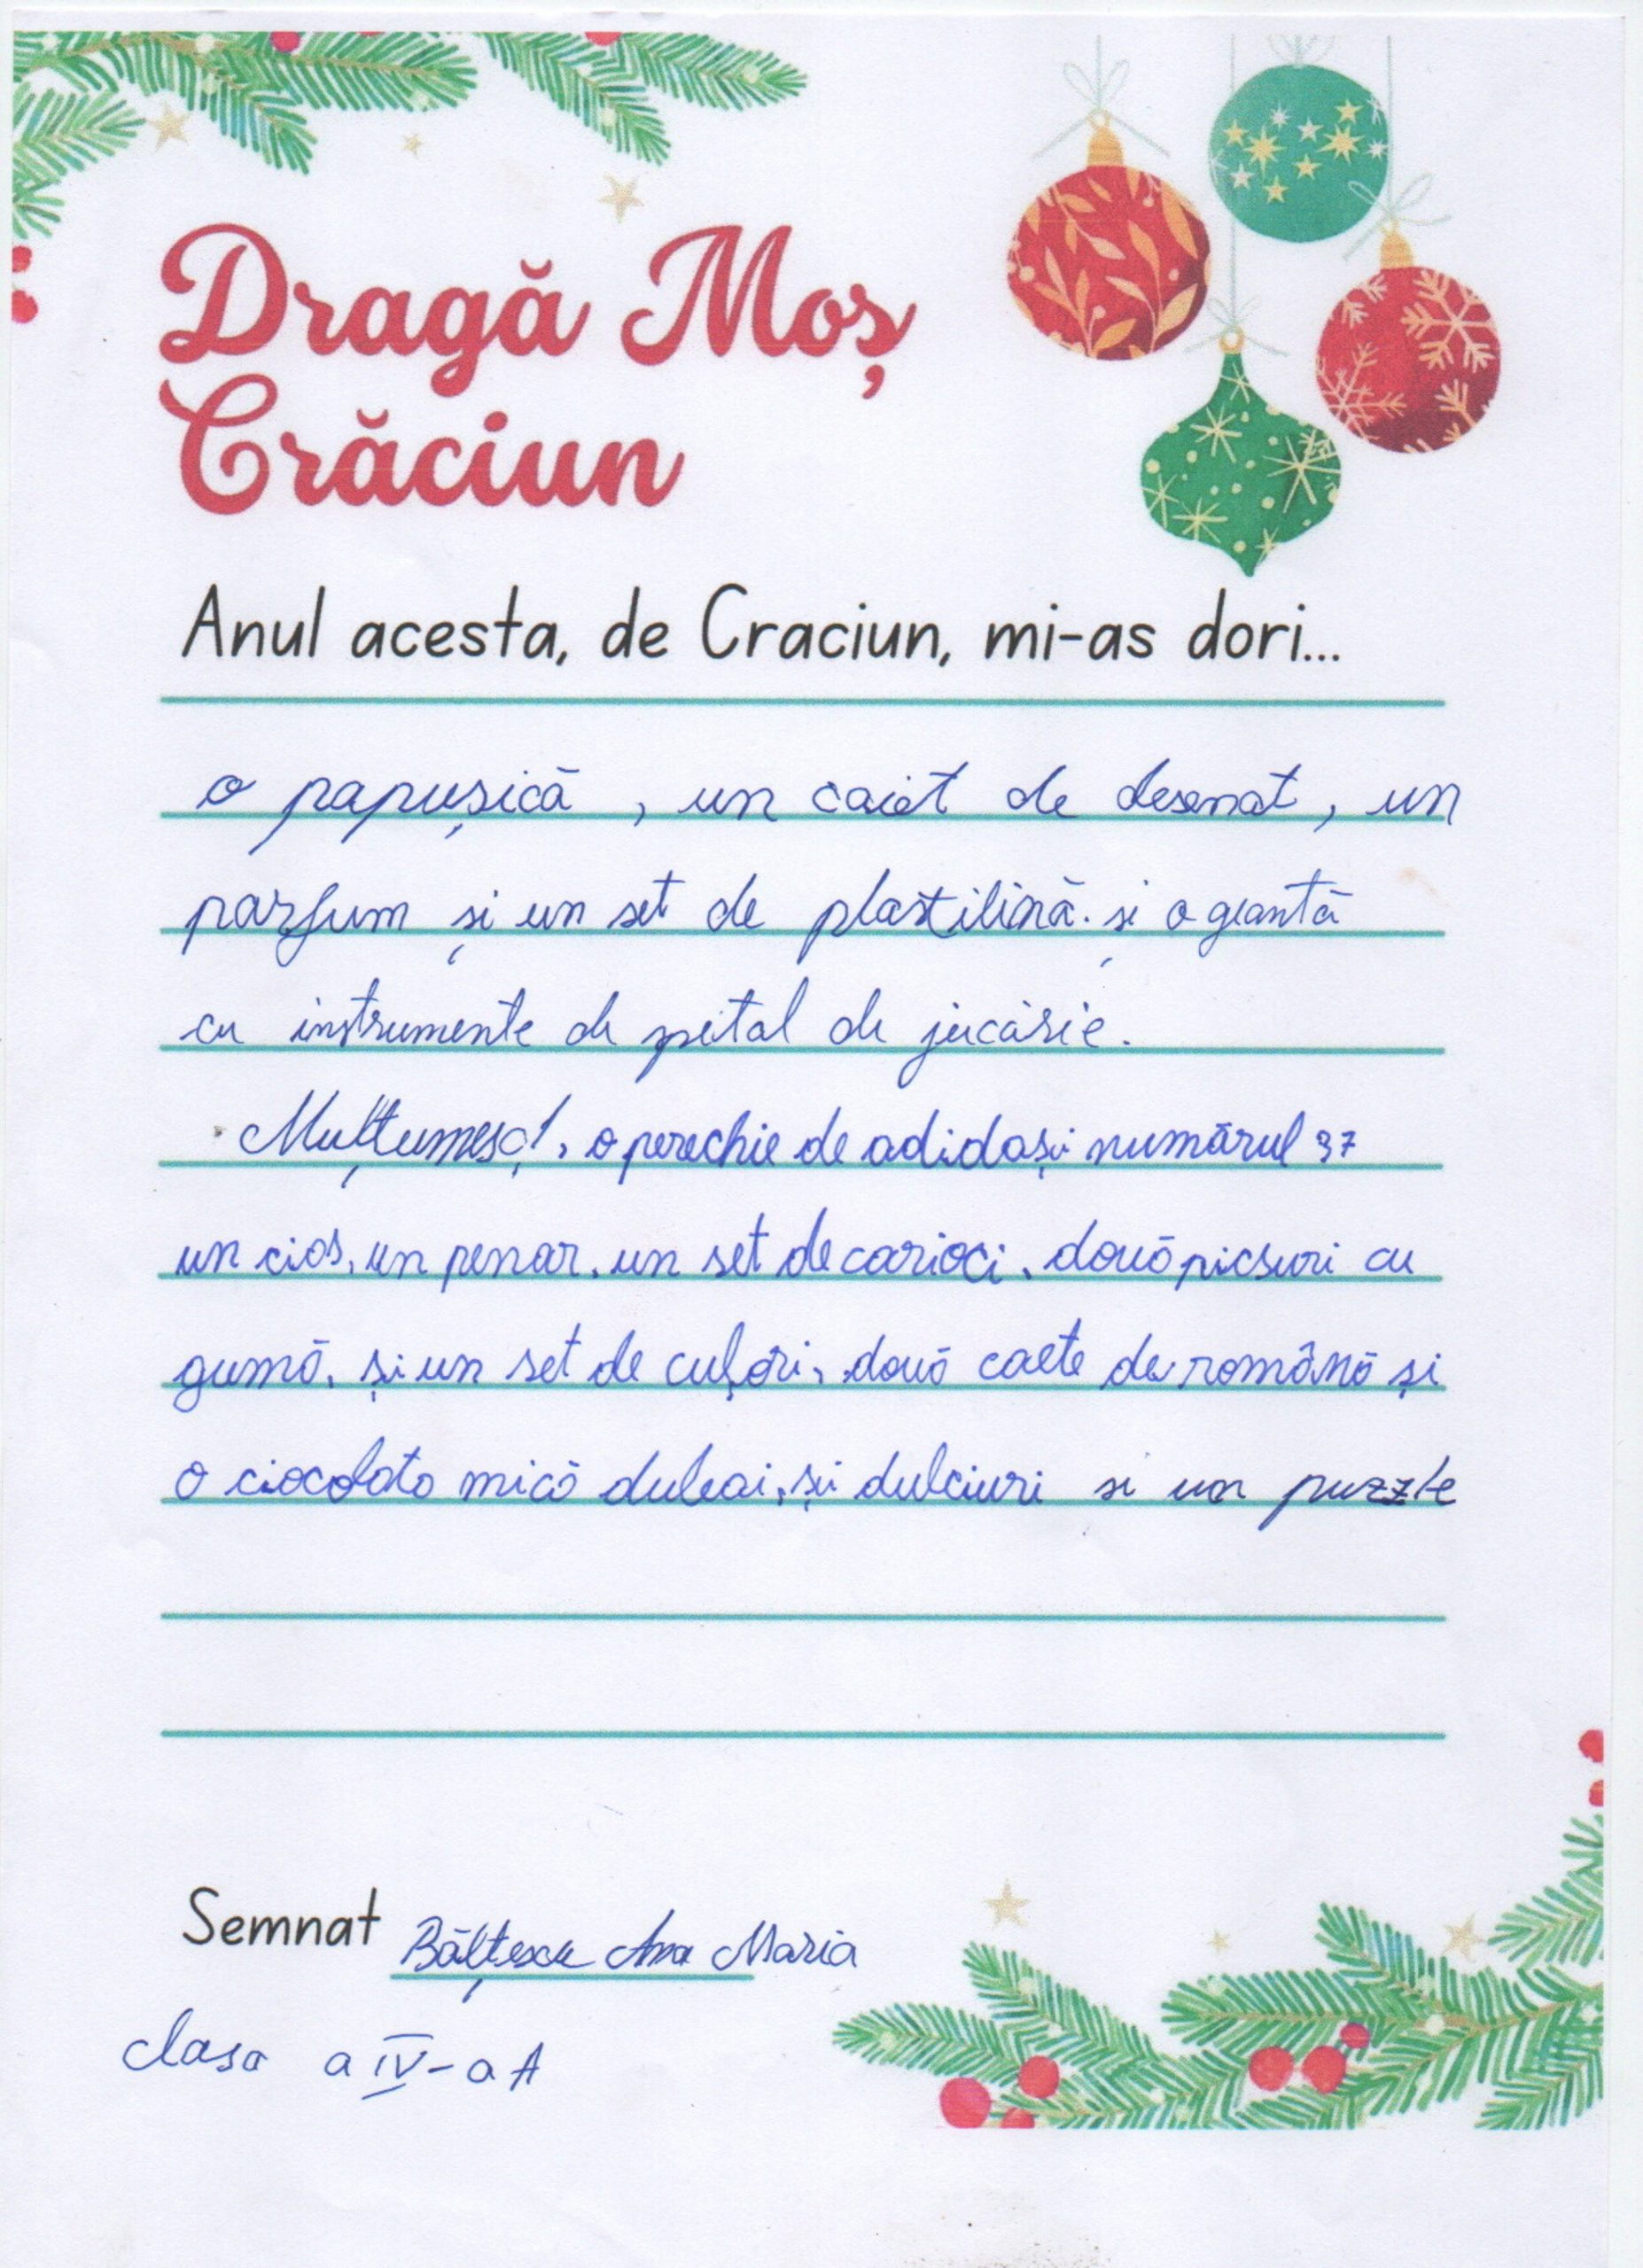 Dragă Moș
Crăciun
Anul acesta, de Craciun, mi-as dori...
o papușică, un caiet de desenat, un
parfum și un set de plastilină. și o geantă
cu instrumente de spital de jucărie.
Mulțumesc!, o perechie de adidași numărul 37
un cios, un penar, un set de carioci, două picsuri cu
gumă, și un set de culori, două caete de română și
o ciocolato mică și dulciuri si un puzzle
Semnat Bălțescu Ana Maria
clasa a IV-a A